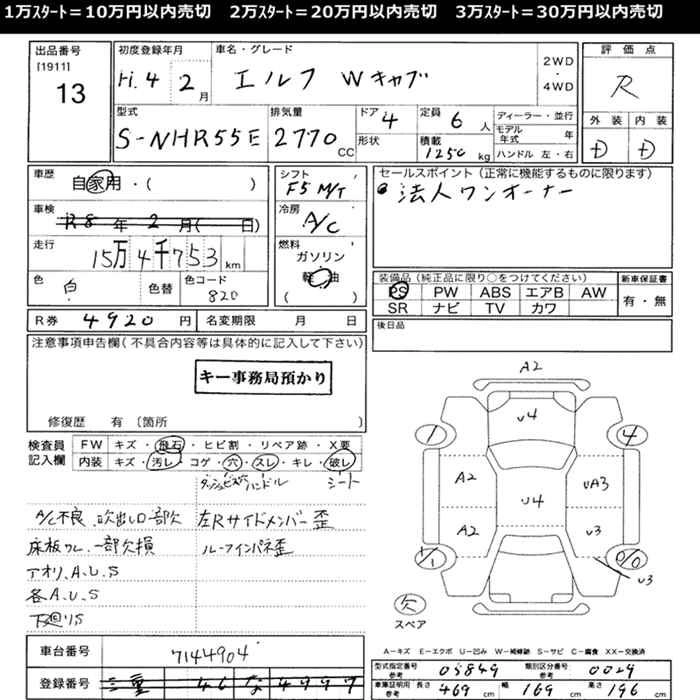 1万ｽﾀｰﾄ＝10万円以内売切　2万ｽﾀｰﾄ＝20万円以内売切　3万ｽﾀｰﾄ＝30万円以内売切
出品番号 [1911] 13
初度登録年月 H.4年 2月
車名・グレード エルフ Wキャブ
2WD・4WD
評価点 R
型式 S-NHR55E
排気量 2770 CC
ドア 4
形状
定員 6人
積載 1250 kg
ディーラー・並行
モデル年式 年
ハンドル 左・右
外装 D
内装 D
車歴 自家用・( )
車検 R8年2月( 日)
走行 15万4千753 km
色 白
色替
色コード 820
シフト F5 M/T
冷房 A/C
燃料 ガソリン (軽油)
セールスポイント (正常に機能するものに限ります)
法人ワンオーナー
装備品 (純正品に限り○をつけてください)
PS PW ABS エアB AW
SR ナビ TV カワ
新車保証書 有・無
後日品
R券 4920円
名変期限 月 日
注意事項申告欄 (不具合内容等は具体的に記入して下さい)
キー事務局預かり
修復歴 有 〔箇所 〕
検査員記入欄
FW キズ・飛石・ヒビ割・リペア跡・X要
内装 キズ・汚レ・コゲ・穴・スレ・キレ・破レ
ダッシュビス穴 ハンドル シート
A/C不良 吹出し口一部欠
左Rサイドメンバー歪
床板ワレ、一部欠損
ルーフインパネ歪
アオリ、A.U.S
各A.U.S
下廻りS
車台番号 7144904
登録番号 三重 な 4997
A2
U4
1
4
A2
UA3
U4
A2
U3
1/1
0/0
U3
欠
スペア
A－キズ E－エクボ U－凹み W－補修跡 S－サビ C－腐食 XX－交換済
型式指定番号 参考 05849
類別区分番号 参考 0029
車庫証明用 参考 長さ 469 cm 幅 169 cm 高さ 196 cm